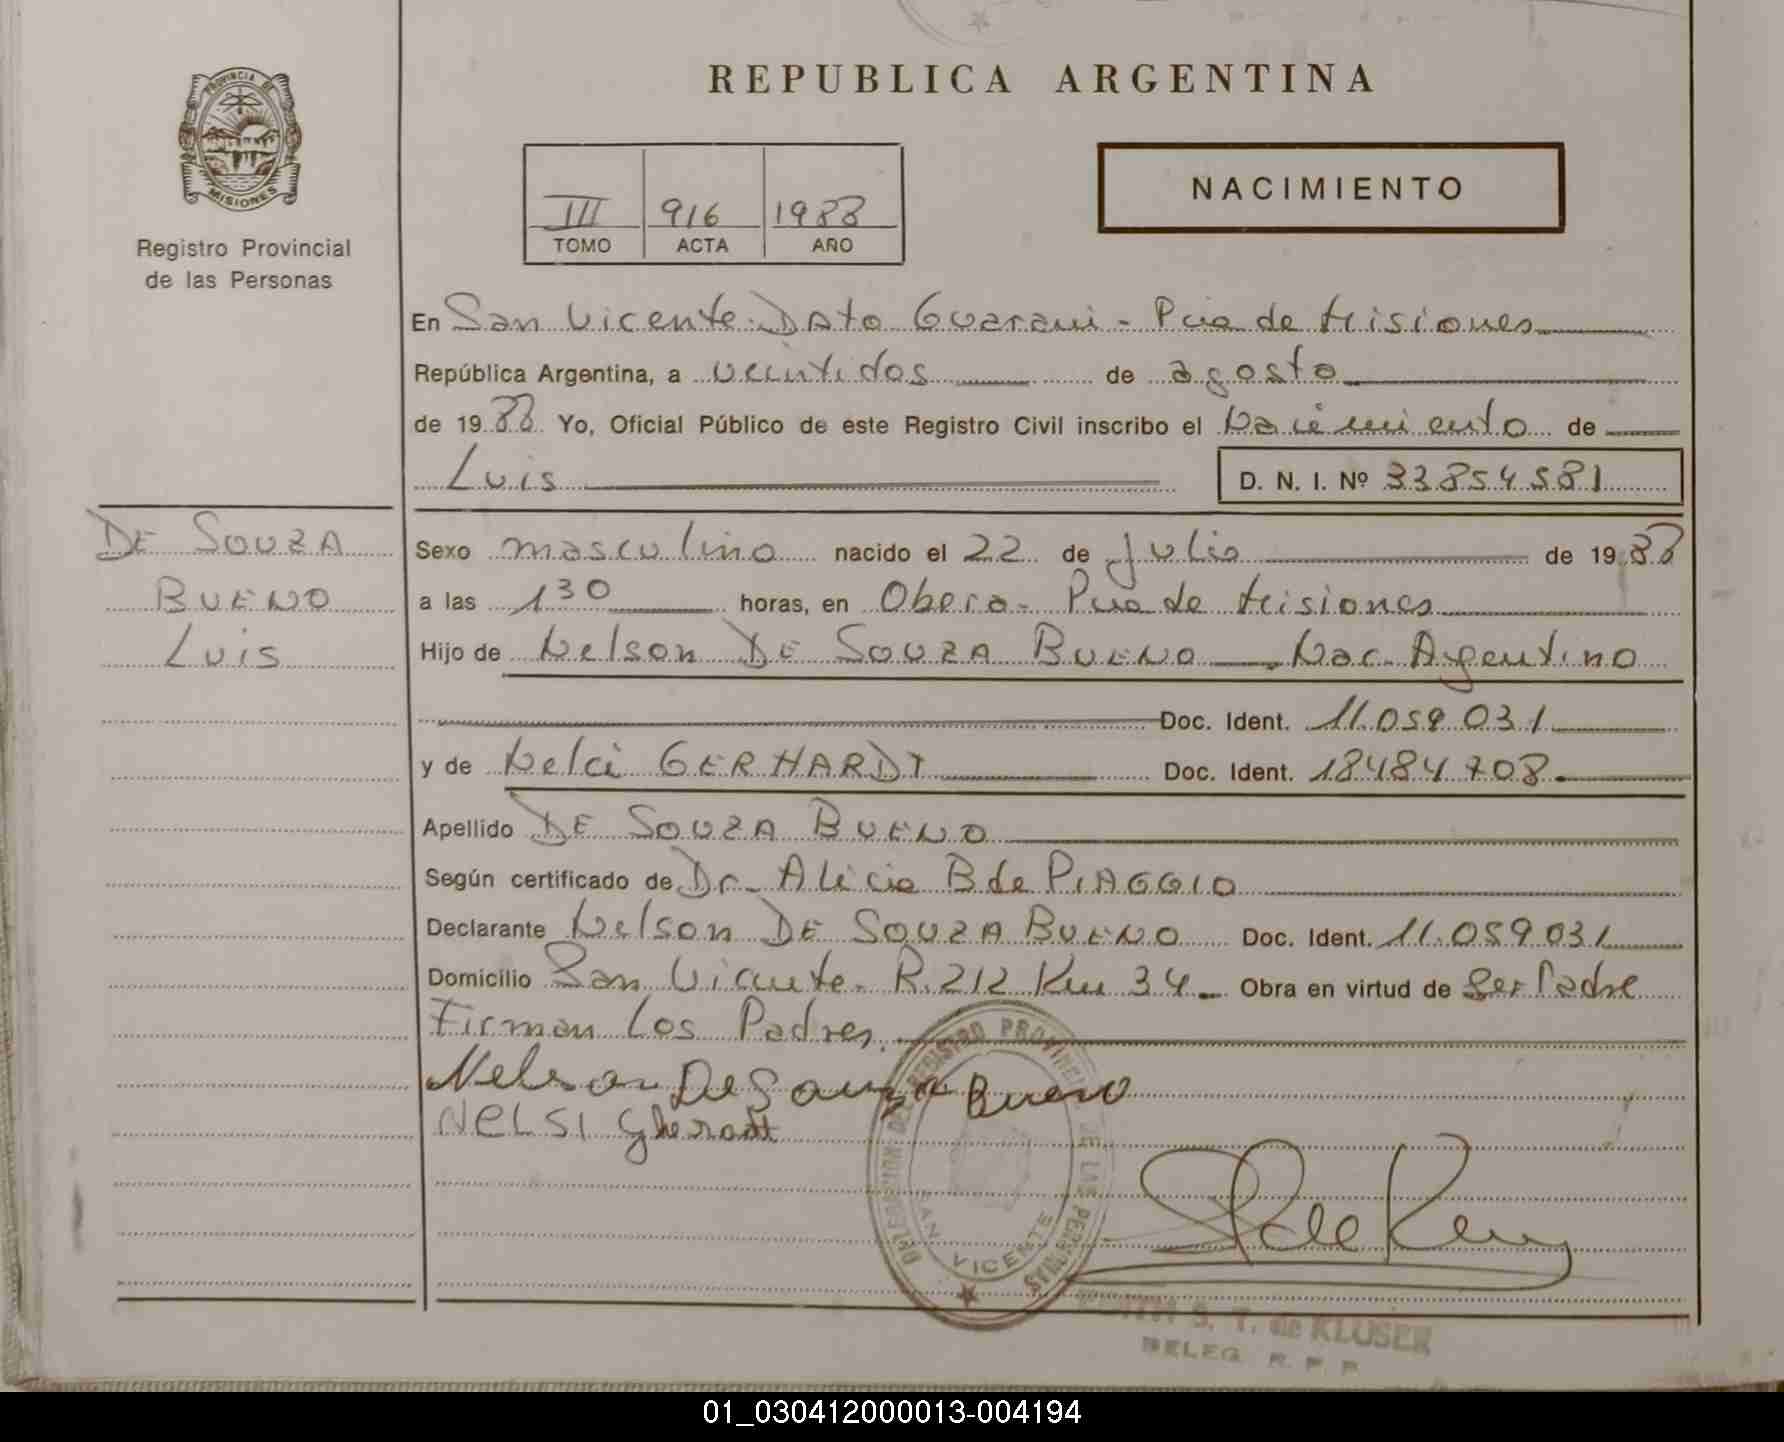 REPUBLICA ARGENTINA
PROVINCIA DE
MISIONES
Registro Provincial
de las Personas
III 916 1988
TOMO ACTA AÑO
NACIMIENTO
En San Vicente - Dpto Guarani - Pcia de Misiones
República Argentina, a veintidos de agosto
de 1988 Yo, Oficial Público de este Registro Civil inscribo el Nacimiento de
Luis D. N. I. Nº 33854581
DE SOUZA
BUENO
Luis
Sexo masculino nacido el 22 de Julio de 1988
a las 1 30 horas, en Obera - Pcia de Misiones
Hijo de Nelson DE SOUZA BUENO Nac. Argentino
Doc. Ident. 11.059.031
y de Nelci GERHARDT Doc. Ident. 18484708
Apellido DE SOUZA BUENO
Según certificado de Dr. Alicia B de PIAGGIO
Declarante Nelson DE SOUZA BUENO Doc. Ident. 11.059031
Domicilio San Vicente - R. 212 Km 34 Obra en virtud de Ser Padre
Firman los Padres
Nelson De Souza Bueno
NELSI Gherardt
DELEGACION DEL REGISTRO PROVINCIAL DE LAS PERSONAS
SAN VICENTE
EDITH S. T. de KLUSER
DELEG. R. P. P.
01_030412000013-004194